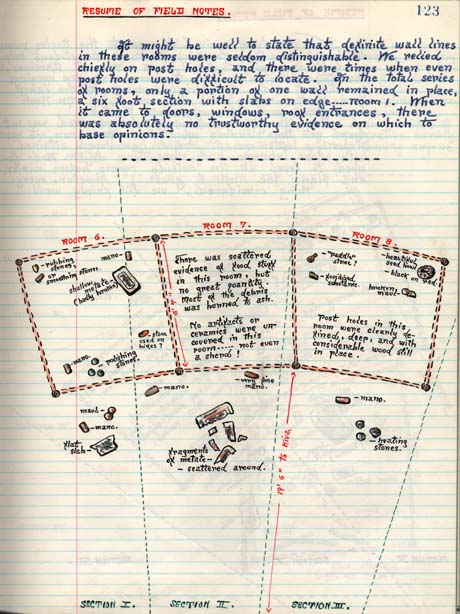 RESUME OF FIELD NOTES.
123
It might be well to state that definite wall lines
in these rooms were seldom distinguishable. We relied
chiefly on post holes, and there were times when even
post holes were difficult to locate. In the total series
of rooms, only a portion of one wall remained in place,
a six foot, section with slabs on edge.....Room 1. When
it came to doors, windows, roof entrances, there
was absolutely no trustworthy evidence on which to
base opinions.
ROOM 6.
rubbing
stones?
or
smoothing stones.
mano.
shallow
metate
(badly burned)
stone
used on
hides?
mano.
polishing
stones.
ROOM 7.
There was scattered
evidence of food stuff
in this room, but
no great quantity.
Most of the debris
was burned to ash.
No artifacts or
ceramics were un-
covered in this
room.... not even
a sherd!
ROOM 8.
"paddle"
stone?
fossilized
substance.
beautiful
seed bowl
black on red
broken
maul
Post holes in this
room were clearly de-
fined, deep, and with
considerable wood still
in place.
maul
mano.
flat
slab
mano.
very fine
mano.
fragments
of metate
scattered around.
mano.
heating
stones.
19' 6" to kiva.
SECTION I.
SECTION II.
SECTION III.